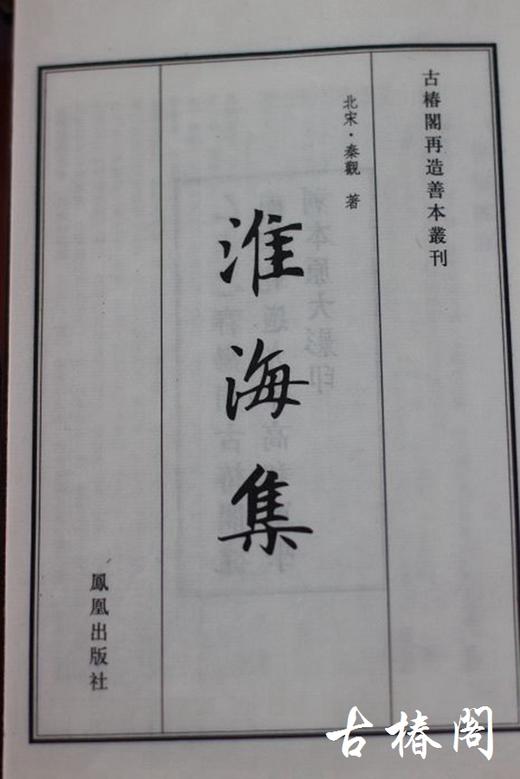 古椿閣再造善本叢刊
北宋·秦觀 著
淮海集
鳳凰出版社
古椿阁